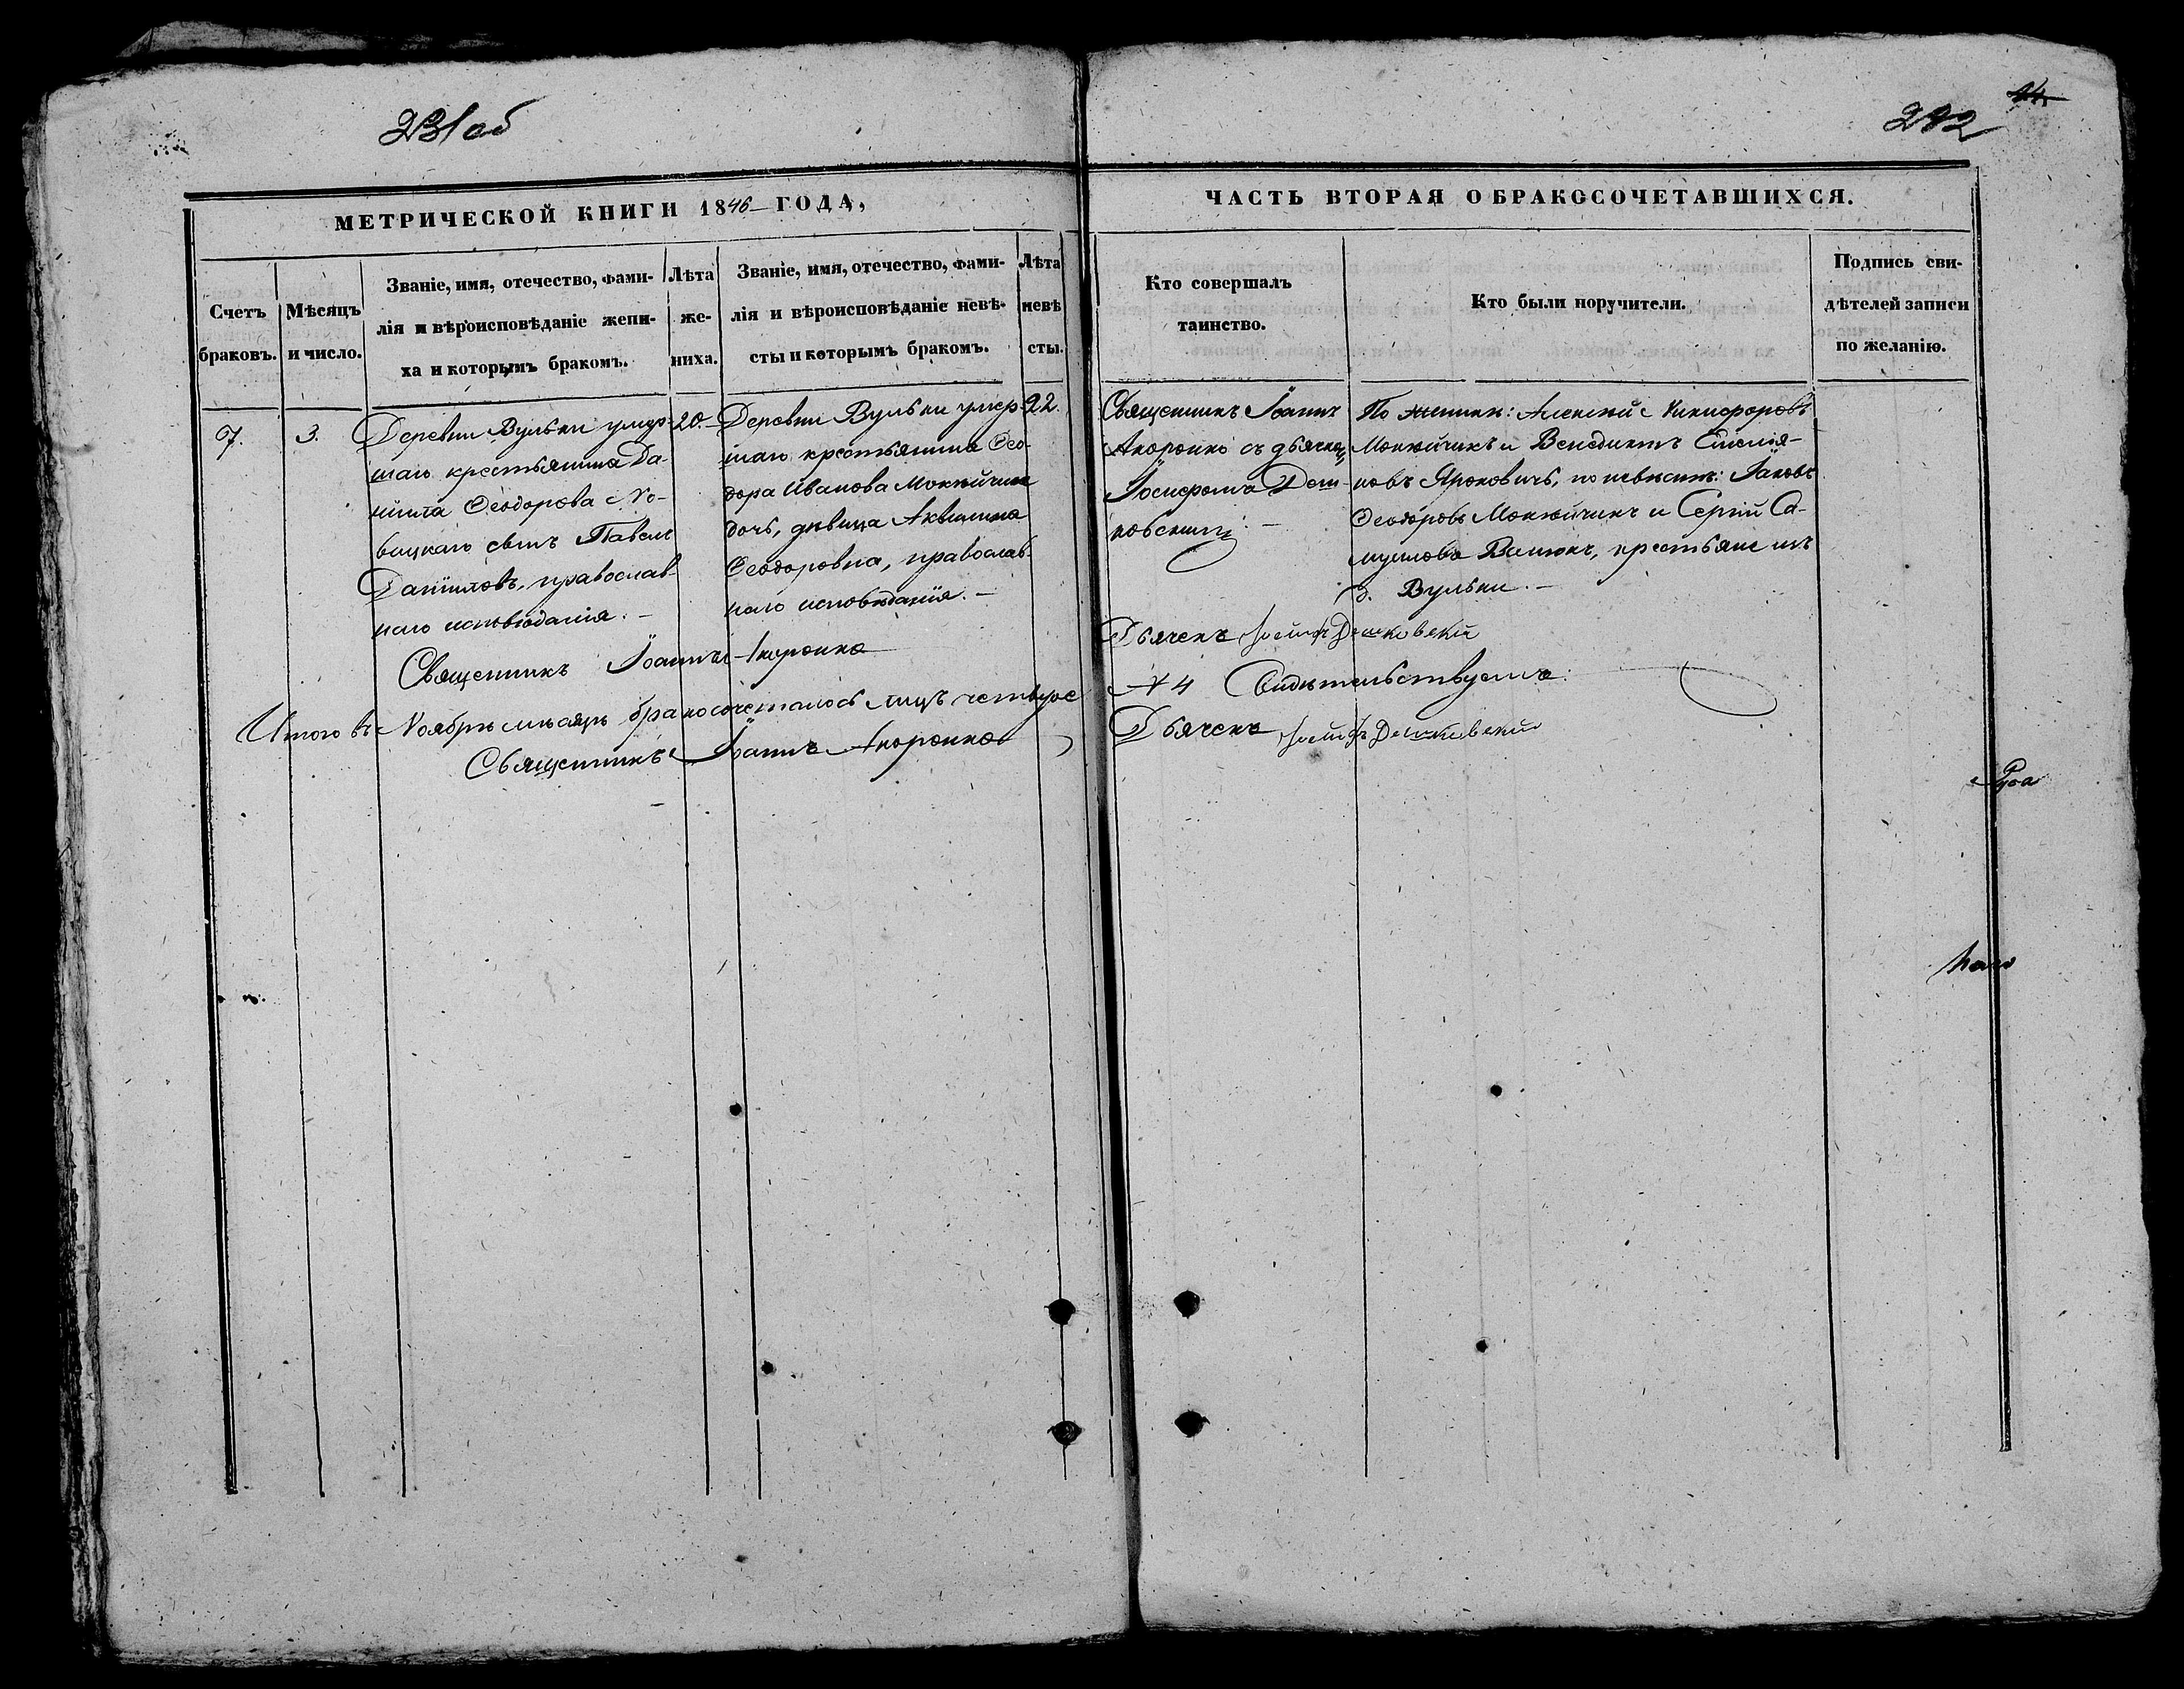 231об
232
14
МЕТРИЧЕСКОЙ КНИГИ 1846 ГОДА,
ЧАСТЬ ВТОРАЯ О БРАКОСОЧЕТАВШИХСЯ.
Счетъ
браковъ.
Мѣсяцъ
и число.
Званіе, имя, отечество, фами-
лія и вѣроисповѣданіе жени-
ха и которымъ бракомъ.
Лѣта
же-
ниха.
Званіе, имя, отечество, фами-
лія и вѣроисповѣданіе невѣ-
сты и которымъ бракомъ.
Лѣта
невѣ
сты.
Кто совершалъ
таинство.
Кто были поручители.
Подпись сви-
дѣтелей записи
по желанію.
7.
3.
Деревни Вульки умер-
шаго крестьянина Да-
ніила Ѳеодорова Но-
вицкаго сынъ Павелъ
Даніиловъ, православ-
наго исповѣданія. –
20.
Деревни Вульки умер-
шаго крестьянина Ѳео-
дора Иванова Моклйчика
дочь, дѣвица Аквилина
Ѳеодоровна, православ-
наго исповѣданія. –
22.
Священникъ Іоаннъ
съ дьячкомъ
Іосифомъ Деш-
ковскимъ. –
По женихѣ: Алексѣй Никифоровъ
и Венедиктъ
по невѣстѣ: Іаковъ
Ѳеодоровъ и Сергій Са-
муиловъ крестьяне изъ
д. Вульки. –
Священникъ Іоаннъ
Дьячекъ Іосифъ Дешковскій
Итого въ Ноябрѣ мѣсяцѣ бракосочеталось лицъ четверо
№ 4 Свидѣтельствуемъ:
Священникъ Іоаннъ
Дьячекъ Іосифъ Дешковскій